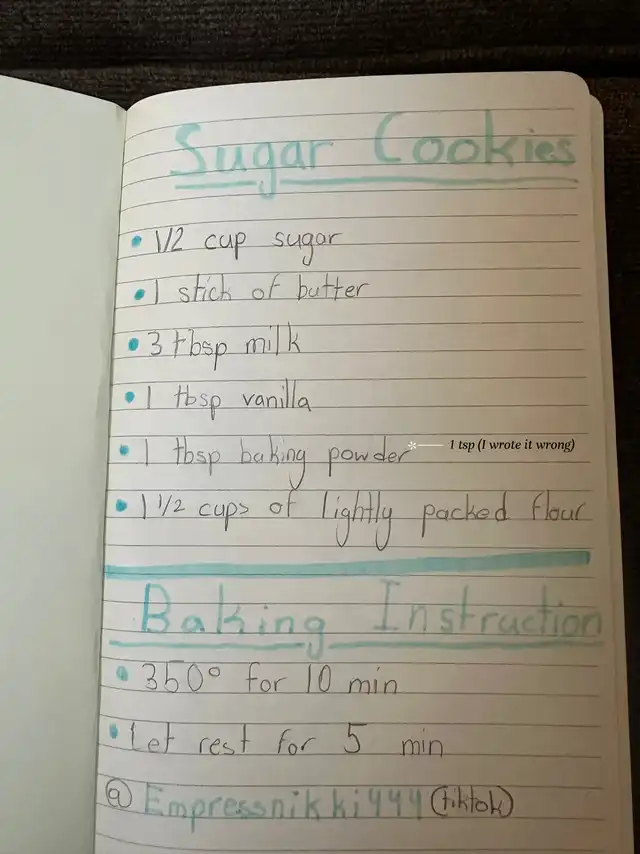 Sugar Cookies
• 1/2 cup sugar
• 1 stick of butter
• 3 tbsp milk
• 1 tbsp vanilla
• 1 tbsp baking powder * 1 tsp (I wrote it wrong)
• 1 1/2 cups of lightly packed flour
Baking Instruction
• 350° for 10 min
• Let rest for 5 min
@Empressnikki444 (tiktok)